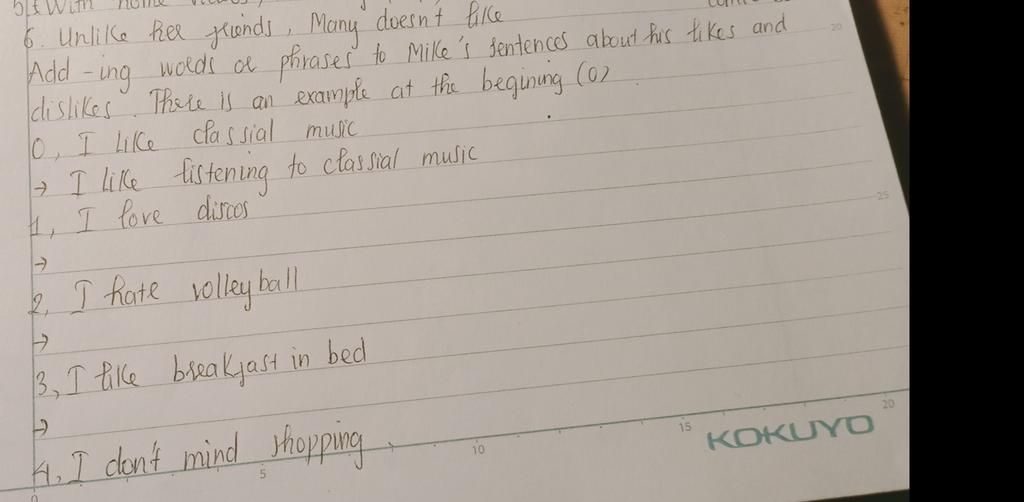 5, with home
6. Unlike her friends, Many doesn't like
Add -ing words or phrases to Mike's sentences about his likes and
dislikes. There is an example at the begining (0)
0, I like classial music
→ I like listening to classial music
1, I love discos
→
2, I hate volleyball
→
3, I like breakfast in bed
→
4, I don't mind shopping
20
25
5
10
15
20
KOKUYO